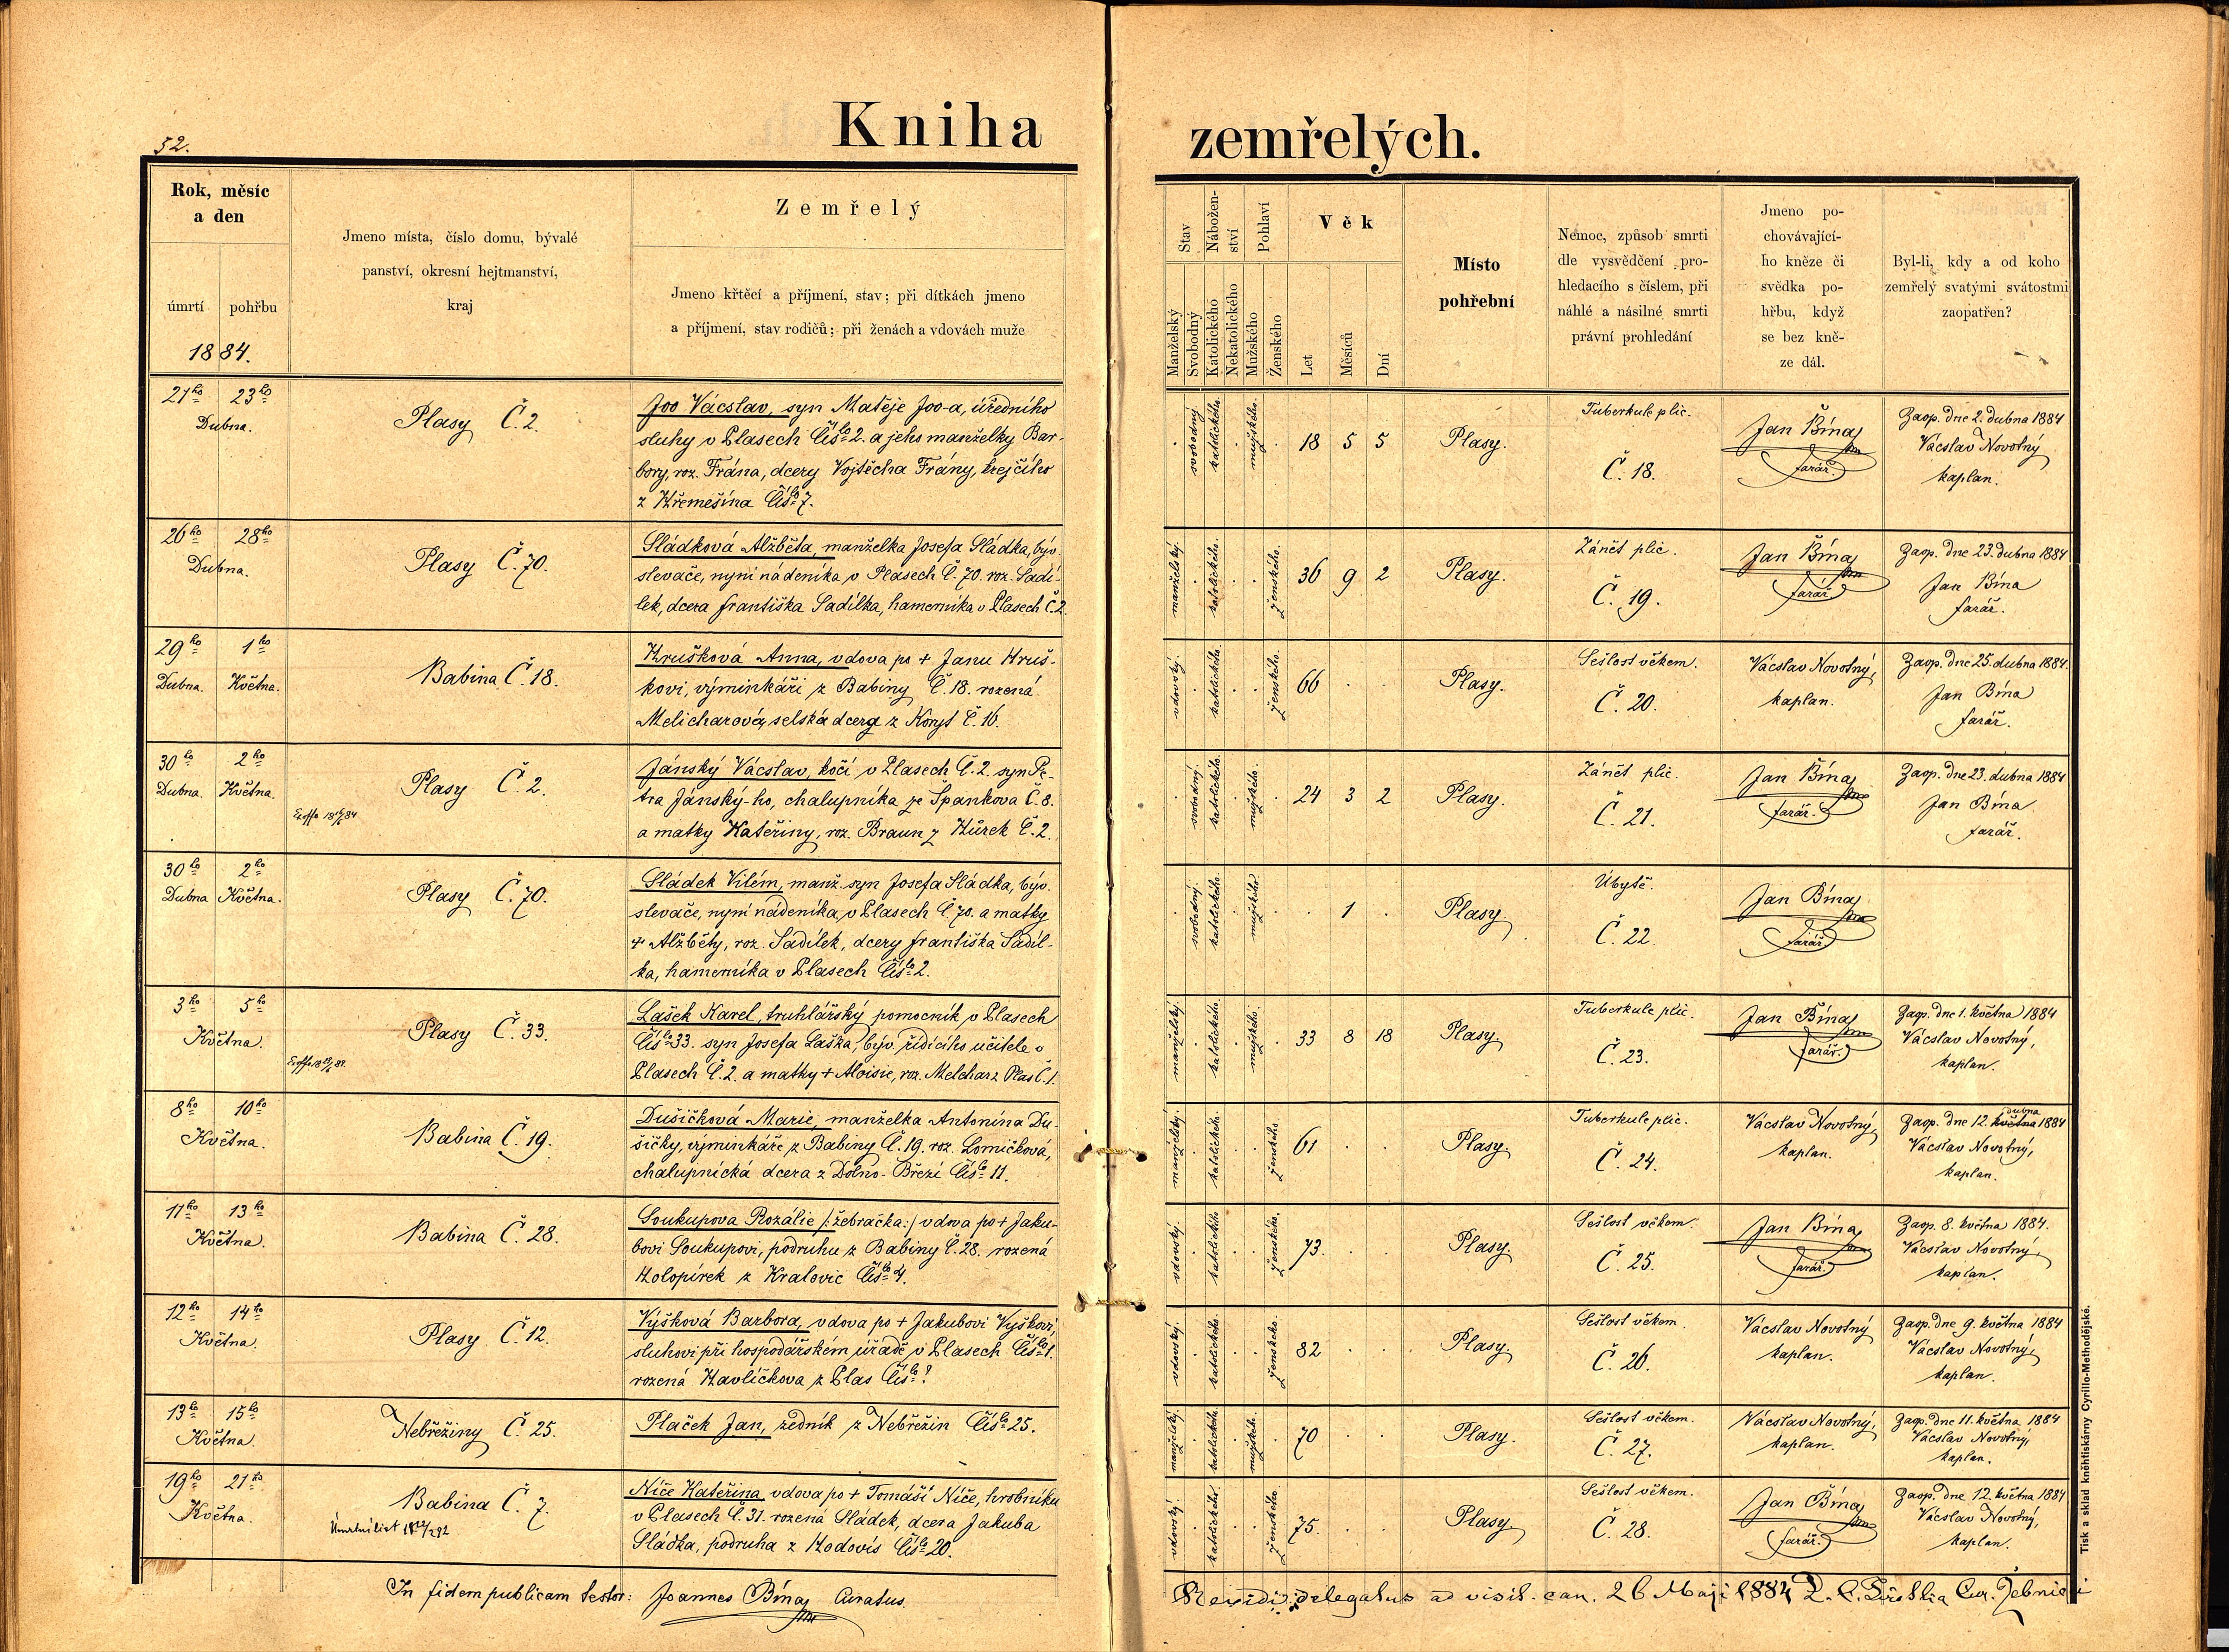 52.
Kniha zemřelých.
Rok, měsíc
a den
úmrtí pohřbu
1884.
Jmeno místa, číslo domu, bývalé
panství, okresní hejtmanství,
kraj
Zemřelý
Jmeno křtěcí a příjmení, stav; při dítkách jmeno
a příjmení, stav rodičů; při ženách a vdovách muže
Stav
Nábožen-
ství
Pohlaví
Věk
Manželský
Svobodný
Katolického
Nekatolického
Mužského
Ženského
Let
Měsíců
Dní
Místo
pohřební
Nemoc, způsob smrti
dle vysvědčení pro-
hledacího s číslem, při
náhlé a násilné smrti
právní prohledání
Jmeno po-
chovávající-
ho kněze či
svědka po-
hřbu, když
se bez kně-
ze dál.
Byl-li, kdy a od koho
zemřelý svatými svátostmi
zaopatřen?
21ho 23ho
Dubna.
Plasy Č. 2.
Joo Vácslav, syn Matěje Joo-a, úředního
sluhy v Plasech Čislo 2. a jeho manželky Bar-
bory, roz. Frána, dcery Vojtěcha Frány, krejčího
z Křemešína Čislo 7.
svobodný katolického mužského 18 5 5
Plasy.
Tuberkule plic.
Č. 18.
Jan Bína
farář.
Zaop. dne 2. dubna 1884
Vácslav Novotný
kaplan.
26ho 28ho
Dubna.
Plasy Č. 70.
Sládková Alžběta, manželka Josefa Sládka, býv.
slevače, nyní nádeníka v Plasech Č. 70. roz. Sadí-
lek, dcera Františka Sadílka, hamerníka v Plasech Č. 2.
manželský. katolického. ženského. 36 9 2
Plasy.
Zánět plic.
Č. 19.
Jan Bína
farář
Zaop. dne 23. dubna 1884
Jan Bína
farář.
29ho 1ho
Dubna. Května.
Babina Č. 18.
Hrušková Anna, vdova po + Janu Hruš-
kovi, výminkáři z Babiny Č. 18. rozená
Melicharová, selská dcera z Koryt Č. 16.
vdovský. katolického. ženského. 66
Plasy.
Sešlost věkem.
Č. 20.
Vácslav Novotný,
kaplan.
Zaop. dne 25. dubna 1884.
Jan Bína
farář.
30ho 2ho
Dubna. Května.
Plasy Č. 2.
Jánský Vácslav, kočí v Plasech Č. 2. syn Pe-
tra Jánský-ho, chalupníka ze Špankova Č. 8.
a matky Kateřiny, roz. Braun z Hůrek Č. 2.
svobodný. katolického. mužského. 24 3 2
Plasy.
Zánět plic.
Č. 21.
Jan Bína
farář.
Zaop. dne 23. dubna 1884
Jan Bína
farář.
30ho 2ho
Dubna Května.
Plasy Č. 70.
Sládek Vilém, manž. syn Josefa Sládka, býv.
slevače, nyní nádeníka, v Plasech Č. 70. a matky
+ Alžběty, roz. Sadílek, dcery Františka Sadíl-
ka, hamerníka v Plasech Čislo 2.
svobodný. katolického. mužského. 1
Plasy.
Úbytě.
Č. 22.
Jan Bína
farář
3ho 5ho
Května.
Plasy Č. 33.
Lašek Karel, truhlářský pomocník v Plasech
Čislo 33. syn Josefa Laška, býv. řídícího učitele v
Plasech Č. 2. a matky + Aloisie, roz. Melchar z Plas Č. 1.
manželský. katolického. mužského. 33 8 18
Plasy
Tuberkule plic.
Č. 23.
Jan Bína
farář.
Zaop. dne 1. května 1884
Vácslav Novotný,
kaplan.
8ho 10ho
Května.
Babina Č. 19.
Dušičková Marie, manželka Antonína Du-
šičky, výminkáře z Babiny Č. 19. roz. Lomičková,
chalupnická dcera z Dolno-Březí Čislo 11.
manželský. katolického. ženského. 61
Plasy.
Tuberkule plic.
Č. 24.
Vácslav Novotný,
kaplan.
dubna
Zaop. dne 12. května 1884
Vácslav Novotný,
kaplan.
11ho 13ho
Května.
Babina Č. 28.
Soukupova Rozálie /:žebračka:/ vdova po + Jaku-
bovi Soukupovi, podruhu z Babiny Č. 28. rozená
Holopírek z Kralovic Čislo 4.
vdovský. katolického ženského. 73.
Plasy.
Sešlost věkem.
Č. 25.
Jan Bína
farář.
Zaop. 8. května 1884.
Vácslav Novotný,
kaplan.
12ho 14ho
Května.
Plasy Č. 12.
Výšková Barbora, vdova po + Jakubovi Vyškovi,
sluhovi při hospodářském úřadě v Plasech Čislo 1.
rozená Havlíčkova z Plas Čislo ?
vdovský. katolického. ženského. 82
Plasy
Sešlost věkem.
Č. 26.
Vácslav Novotný
kaplan.
Zaop. dne 9. května 1884
Vácslav Novotný,
kaplan.
13ho 15ho
Května.
Nebřeziny Č. 25.
Plaček Jan, zedník z Nebřežin Čislo 25.
manželský. katolického. mužského. 70
Plasy.
Sešlost věkem.
Č. 27.
Vácslav Novotný,
kaplan.
Zaop. dne 11. května 1884
Vácslav Novotný,
kaplan.
19ho 21ho
Května.
Babina Č. 7.
Úmrtní list
Niče Kateřina vdova po + Tomáši Niče, hrobníku
v Plasech Č. 31. rozená Sládek, dcera Jakuba
Sládka, podruha z Hodovis Čislo 20.
vdovský. katolického. ženského. 75.
Plasy
Sešlost věkem.
Č. 28.
Jan Bína
farář.
Zaop. dne 12. května 1884
Vácslav Novotný,
kaplan.
In fidem publicam testor: Joannes Bína Curatus.
Revidi delegatus ad visit. can. 26 Maji 1884
Tisk a sklad kněhtiskárny Cyrillo-Methodějské.